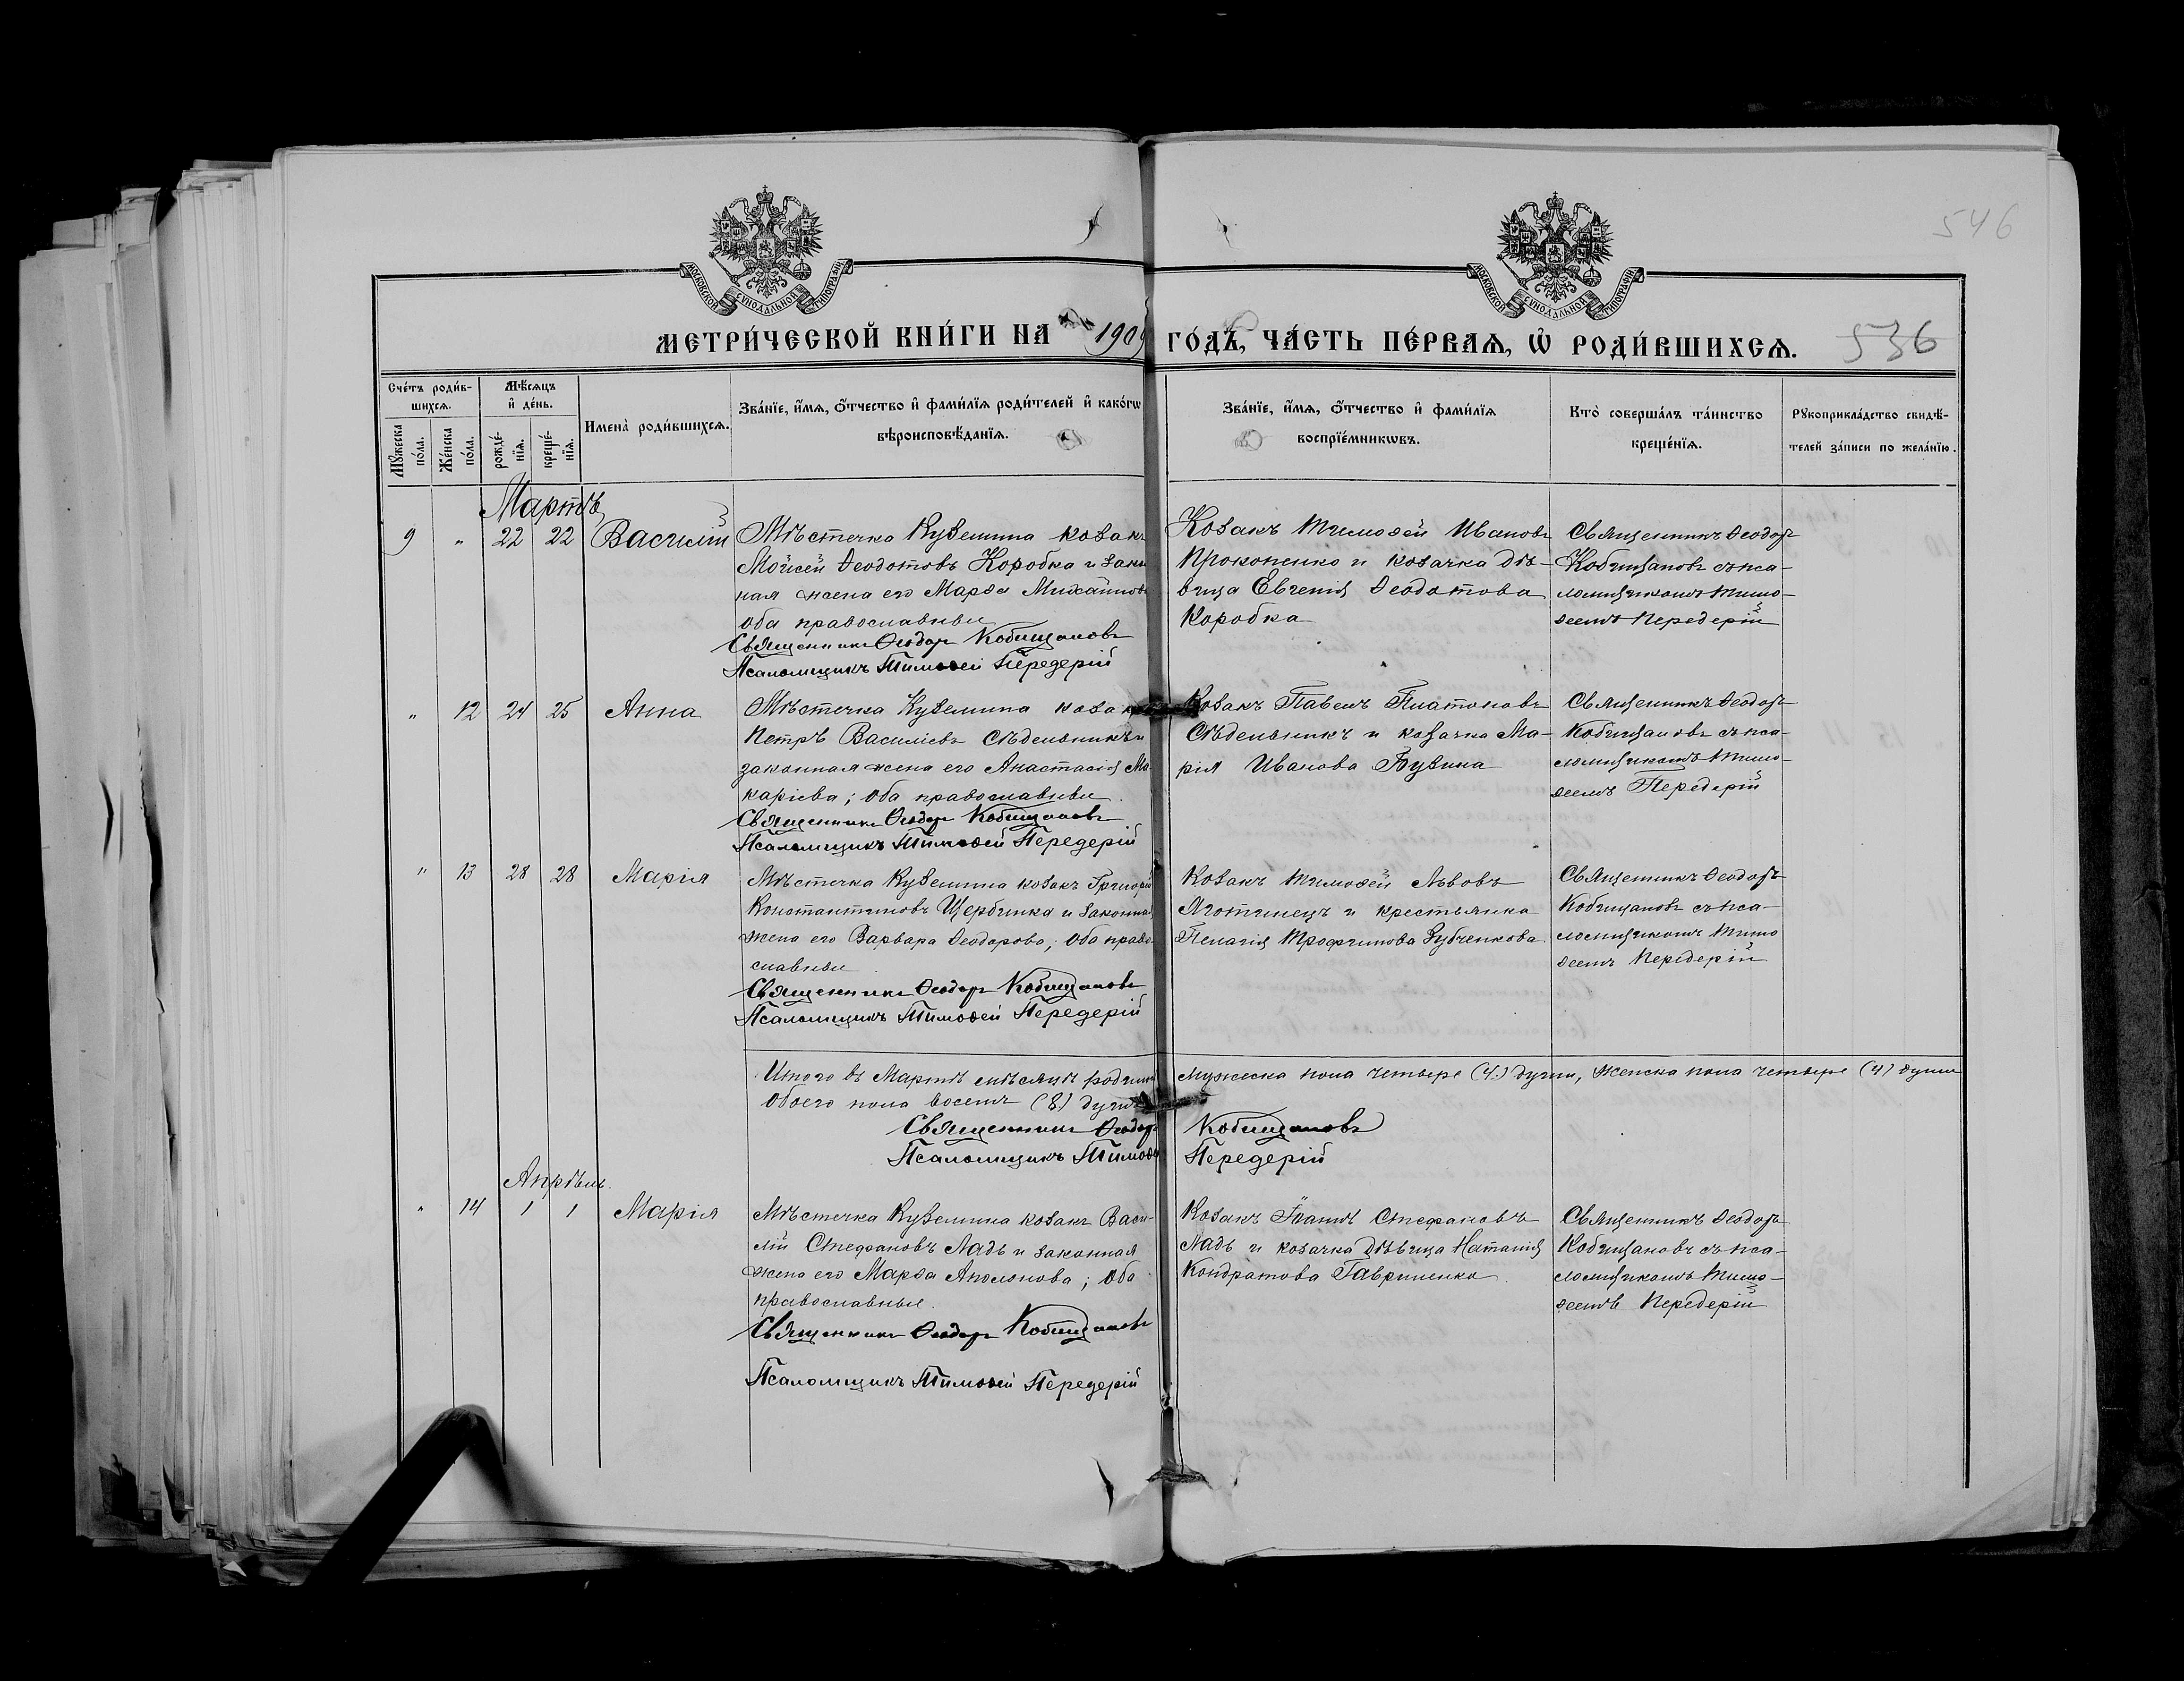 546
МОСКОВСКОЙ СУНОДАЛЬНОЙ ТИПОГРАФІИ
МОСКОВСКОЙ СУНОДАЛЬНОЙ ТИПОГРАФІИ
МЕТРИ́ЧЕСКОЙ КНИ́ГИ НА 1909 ГО́ДЪ, ЧА́СТЬ ПЕ́РВАЯ, Ѡ РОДИ́ВШИХСЯ.
536
Сче́тъ роди́в-
шихся.
Мѣ́сяцъ
и де́нь.
Имена̀ роди́вшихся.
Зва́нїе, и́мя, о́тчество и фами́лїя роди́телей и како́гѡ
вѣроисповѣ́данїя.
Зва́нїе, и́мя, о́тчество и фами́лїя
воспрїе́мникѡвъ.
Кто̀ соверша́лъ та́инство
креще́нїя.
Рꙋкоприкла́дство свидѣ́-
телей за́писи по жела́нїю.
Мꙋ́жеска
по́ла.
Же́нска
по́ла.
рожде́-
нїя.
креще́-
нїя.
Мартъ
9 " 22 22 Василій
Мѣстечка Куземина козакъ
Мойсей Ѳеодотовъ Коробка и закон
ная жена его Марѳа Михайлов
оба православные
Священникъ Ѳеодоръ Кобищановъ
Псаломщикъ Тимоѳей Передерій
Козакъ Тимоѳей Ивановъ
Прокопенко и козачка дѣ-
вица Евгенія Ѳеодотова
Коробка
Священникъ Ѳеодоръ
Кобищановъ съ пса-
ломщикомъ Тимо-
ѳеемъ Передерій
" 12 24 25 Анна
Мѣстечка Куземина козакъ
Петръ Василіевъ Сѣдельникъ и
законная жена его Анастасія Ма
каріева; оба православные.
Священникъ Ѳеодоръ Кобищановъ
Псаломщикъ Тимоѳей Передерій
Козакъ Павелъ Платоновъ
Сѣдельникъ и козачка Ма-
рія Иванова Бузина
Священникъ Ѳеодоръ
Кобищановъ съ пса-
ломщикомъ Тимо-
ѳеемъ Передерій
" 13 28 28 Марія
Мѣстечка Куземина козакъ Григорій
Константиновъ Щербинка и законна
жена его Варвара Ѳеодорова; оба право
славные.
Священникъ Ѳеодоръ Кобищановъ
Псаломщикъ Тимоѳей Передерій
Козакъ Тимоѳей Львовъ
Яготинецъ и крестьянка
Пелагія Трофимова Зубченкова
Священникъ Ѳеодоръ
Кобищановъ съ пса-
ломщикомъ Тимо
ѳеемъ Передерій
Итого въ Мартѣ мѣсяцѣ родил мужеска пола четыре (4.) души, женска пола четыре (4) души
обоего пола восемь (8.) душъ
Священникъ Ѳеодоръ Кобищановъ
Псаломщикъ Тимоѳей Передерій
Апрѣль.
" 14 1 1 Марія
Мѣстечка Куземина козакъ Васи-
лій Стефановъ Ладъ и законная
жена его Марѳа Аполонова; оба
православные.
Священникъ Ѳеодоръ Кобищановъ
Псаломщикъ Тимоѳей Передерій
Козакъ Стефановъ
Ладъ и козачка дѣвица Наталія
Кондратова Гавриленко.
Священникъ Ѳеодоръ
Кобищановъ съ пса-
ломщикомъ Тимо-
ѳеемъ Передерій